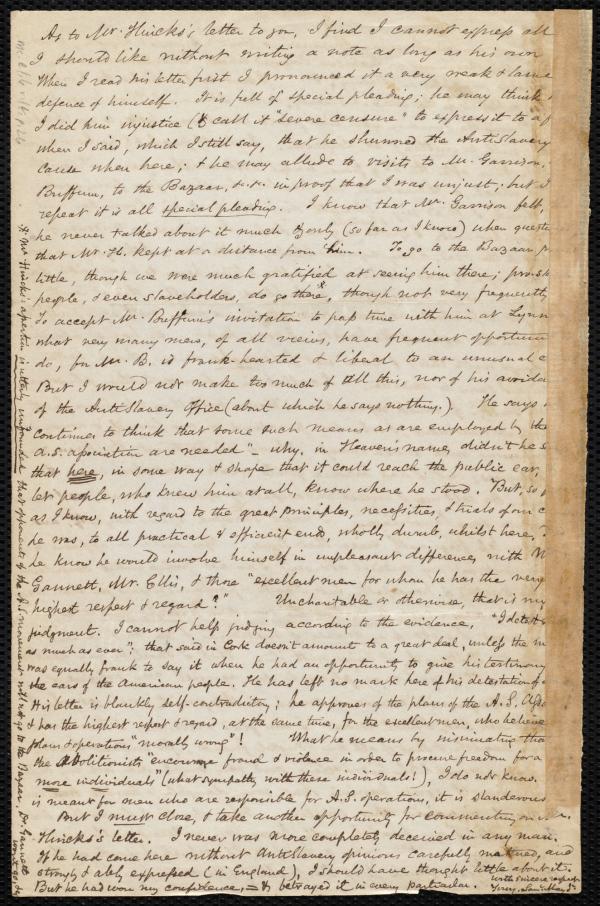 As to Mr. Hincks's letter to you, I find I cannot express all
I should like without writing a note as long as his own
When I read his letter first I pronounced it a very weak & lame
defence of himself. It is full of special pleading; he may think
I did him injustice (I call it "severe censure" to express it to a
when I said, which I still say, that he shunned the Antislavery
cause when here; & he may allude to visits to Mr. Garrison,
Buffum, to the Bazaar, &c. &c. in proof that I was unjust; but I
repeat it is all special pleading. I know that Mr. Garrison felt,
he never talked about it much & only (so far as I know) when quest
that Mr. H. kept at a distance from him. To go to the Bazaar
little, though we were much gratified at seeing him there; pro-sl
people, & even slaveholders, do go there, though not very frequently
To accept Mr. Buffum's invitation to pass time with him at Lynn
what very many men, of all views, have frequent opportun
do, for Mr. B. is frank-hearted & liberal to an unusual
But I would not make too much of all this, nor of his avoida
of the Anti Slavery Office (about which he says nothing.). He says
"continues to think that some such means as are employed by the
A.S. association are needed" - why, in Heaven's name, didn't he s
that here, in some way & shape that it could reach the public ear,
let people, who knew him at all, know where he stood. But, so
as I know, with regard to the great principles, necessities, & trials of our c
he was, to all practical & efficient ends, wholly dumb, whilst here,
he know he would involve himself in unpleasant differences with
Gannett, Mr. Ellis, & those "excellent men for whom he has the very
highest respect & regard?" Uncharitable or otherwise, that is my
judgment. I cannot help judging according to the evidence, "I detest
as much as ever"; that said in Cork doesn't amount to a great deal, unless the m
was equally frank to say it when he had an opportunity to give his testimony
the ears of the American people. He has left no mark here of his detestation of
His letter is blankly self-contradictory; he approves of the plans of the A.S. Asso
& has the highest respect & regard, at the same time, for the excellent men, who believe
plans & operations "morally wrong"! What he means by insinuating tha
the Abolitionists "encourage fraud & violence in order to procure freedom for a
more individuals" (what sympathy with these individuals!), I do not know.
is meant for men who are responsible for A.S. operations, it is slanderous
But I must close, & take another opportunity for commenting on
Hincks's letter. I never was more completely deceived in any man.
If he had come here without Antislavery opinions carefully matured, and
strongly & ably expressed (in England), I should have thought little about it.
But he had won my confidence, & betrayed it in every particular.
with sincere respect
Yours, Saml. May, Jr.
* Mr. Hincks's assertion is utterly unfounded that opponents of the A.S. movement will not go to the Bazaar. Dr. Gannett